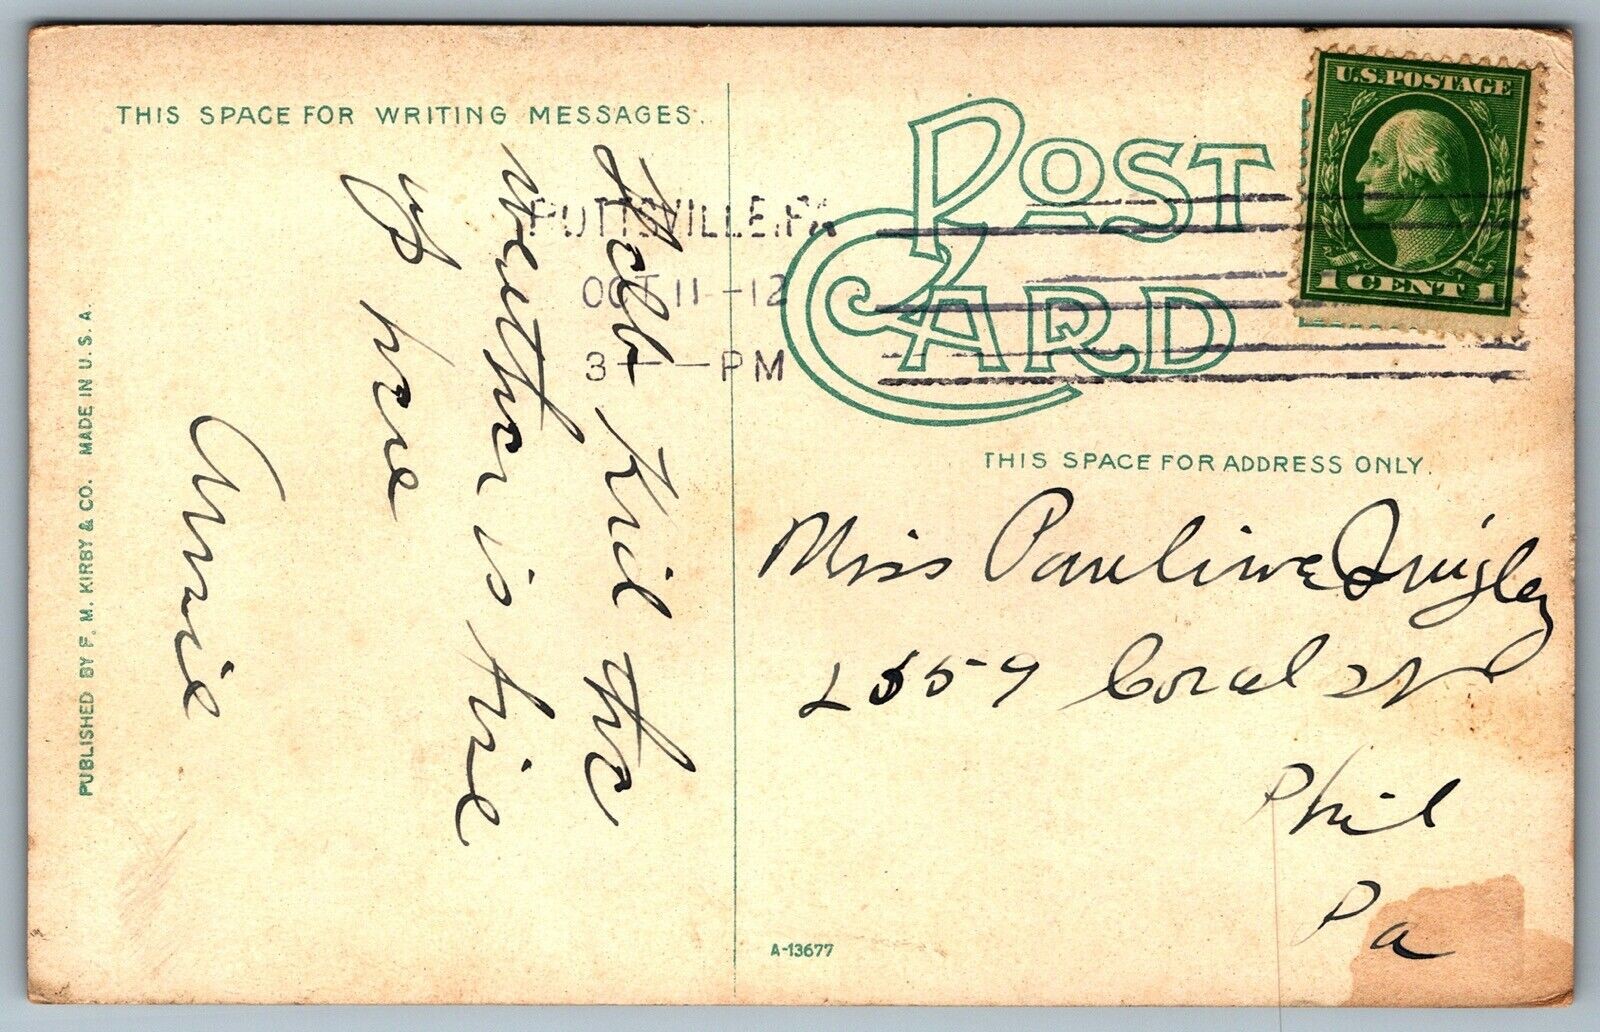 THIS SPACE FOR WRITING MESSAGES.
Hello Kid the
weather is fine
up here
Annie
PUBLISHED BY F. M. KIRBY & CO. MADE IN U. S. A.
POTTSVILLE, PA
OCT 11 -12
3 - PM
POST
CARD
U.S. POSTAGE
1 CENT 1
THIS SPACE FOR ADDRESS ONLY.
Miss Pauline Quigley
2559 Coral St
Phil
Pa
A-13677